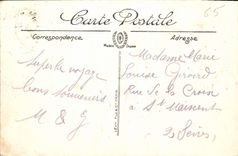 65
Carte Postale
Correspondance
Adresse
Madame Marie
Louise Girard
Rue de la Croix
à St Maixent
2 Sèvres
Superbe voyage
bons souvenirs
M & G